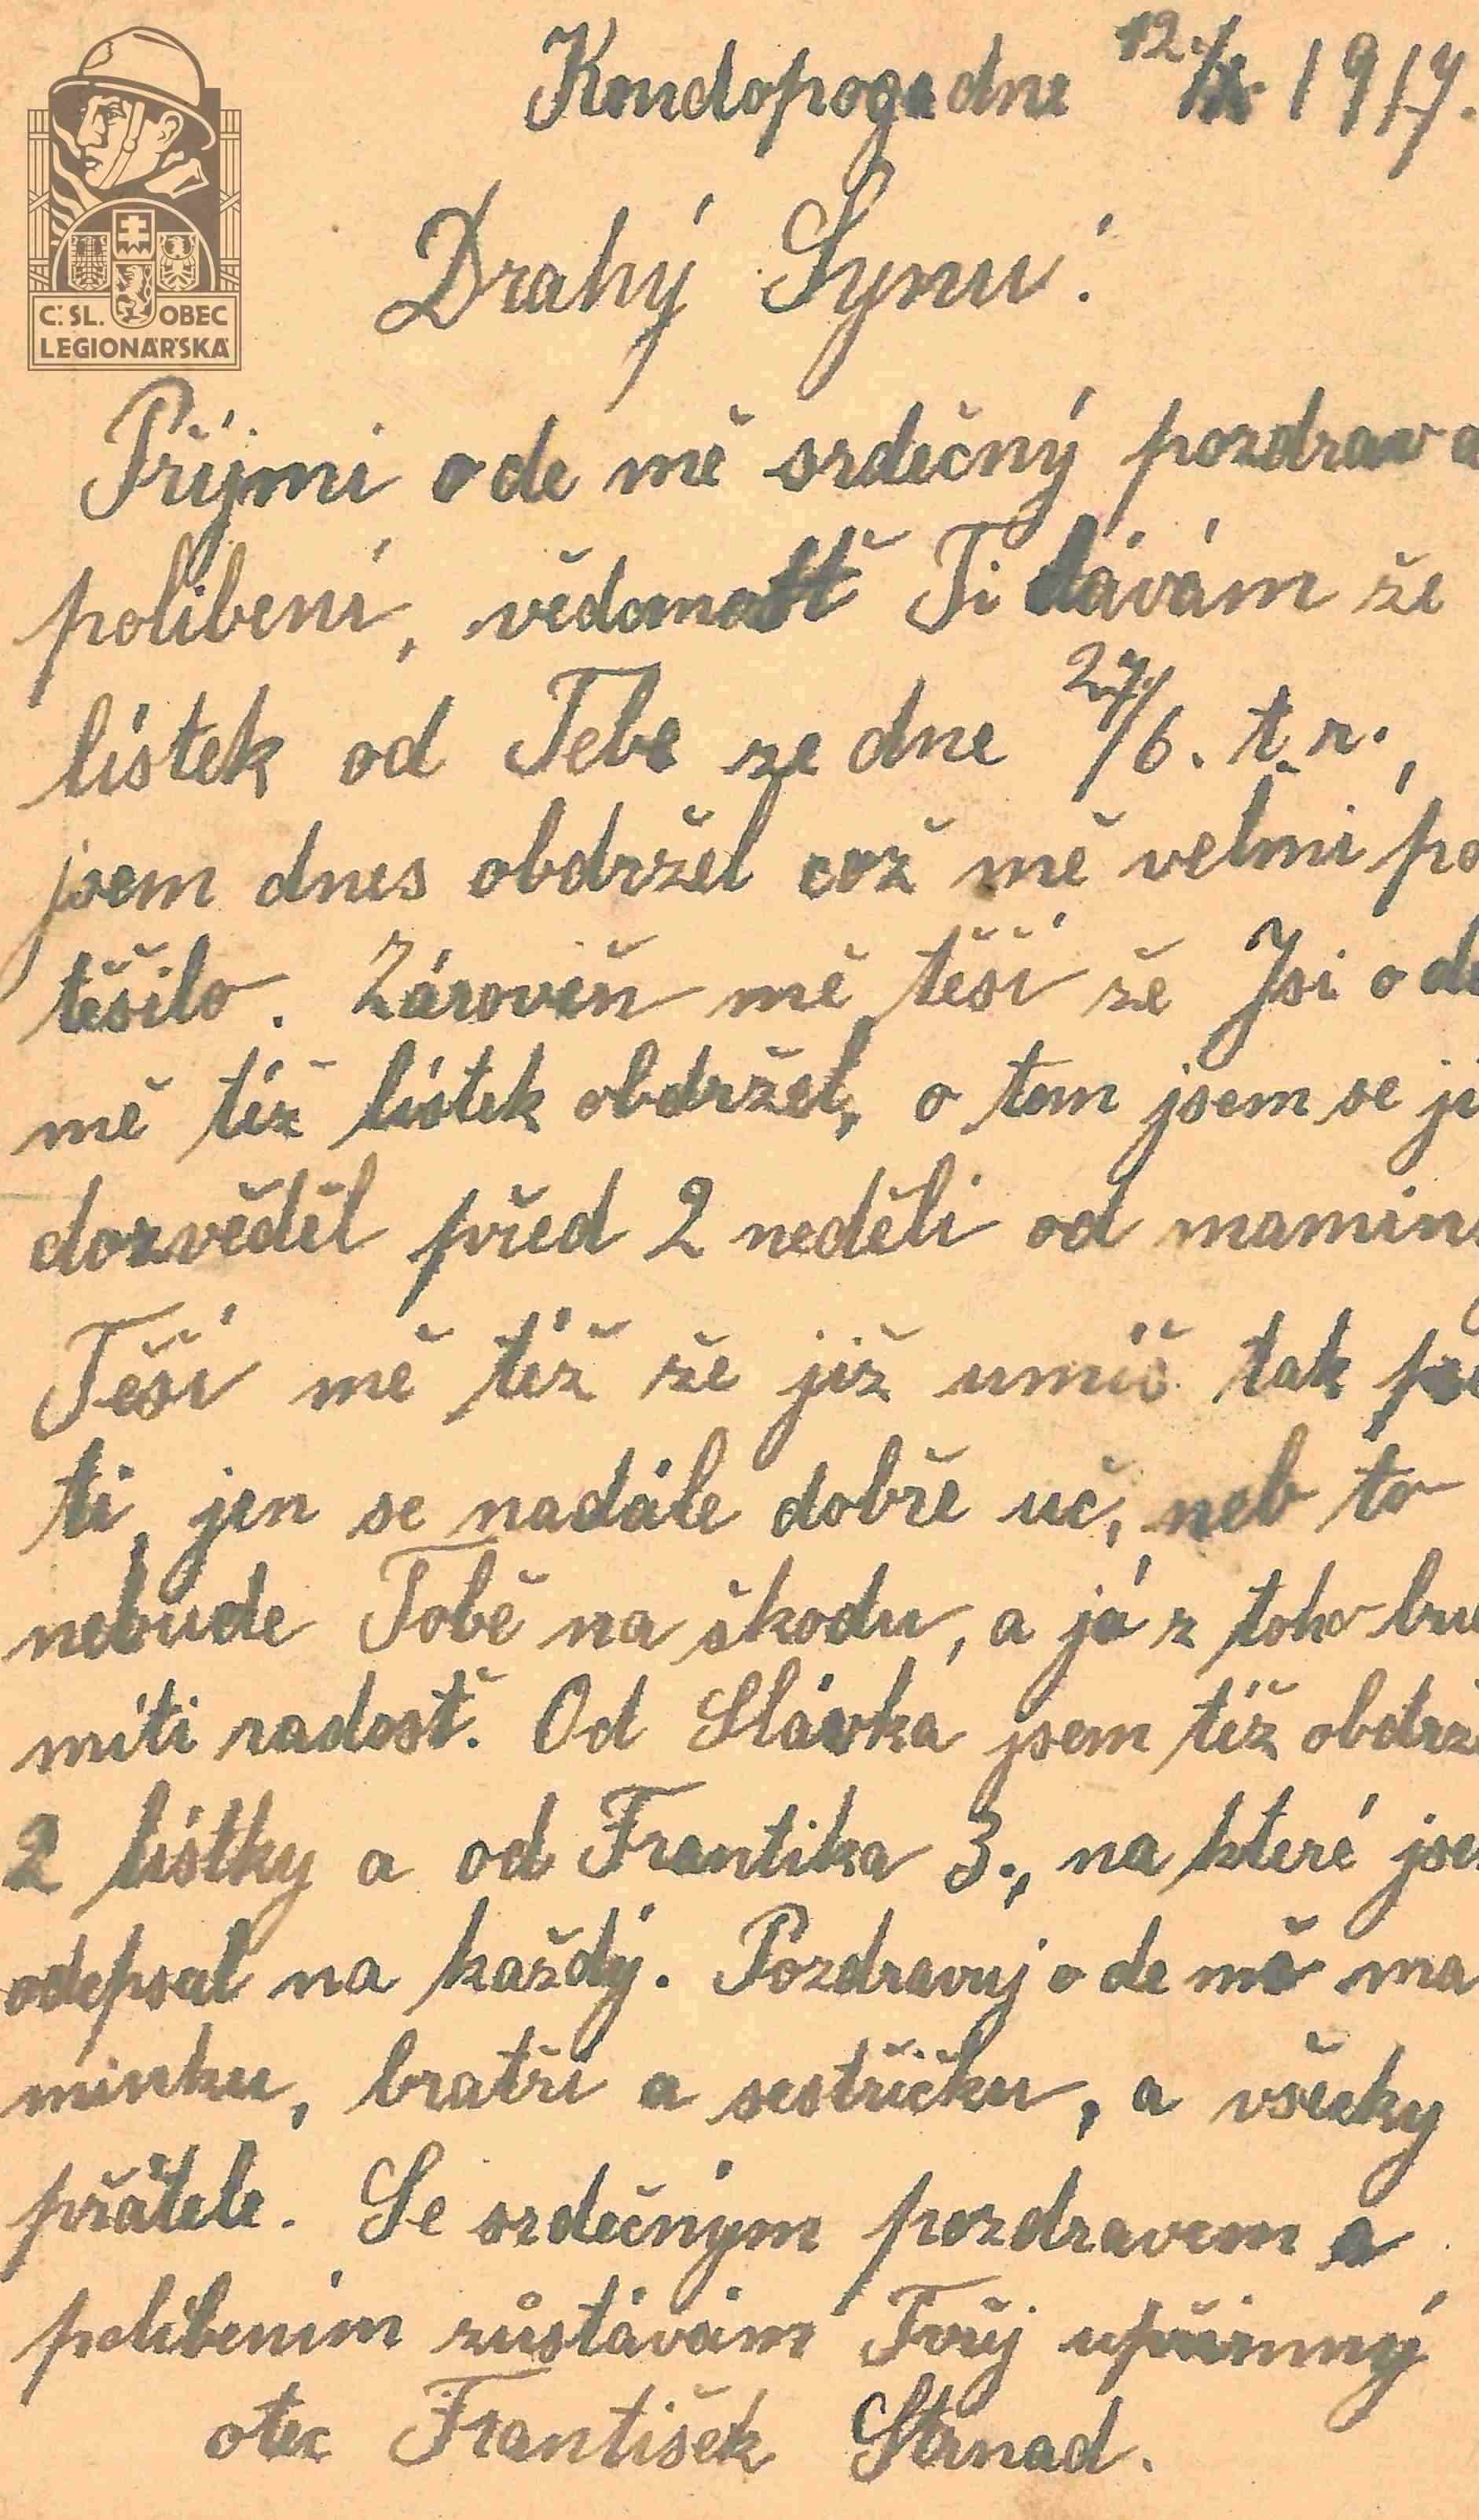 Č.SL. OBEC
LEGIONÁŘSKÁ
Kondopoga dne 12./IX. 1917.
Drahý Synu!
Přijmi ode mě srdečný pozdrav a
políbení, vědomosť Ti dávám že
lístek od Tebe ze dne 27./6. t. r.,
jsem dnes obdržel což mě velmi po
těšilo. Zároveň mě těší že Jsi ode
mě též lístek obdržel, o tom jsem se ji
dozvěděl před 2 neděli od mamin
Těší mě též že již umíš tak
ti, jen se nadále dobře uč, neb to
nebude Tobě na škodu, a já z toho bu
míti radosť. Od Slávka jsem též obdrž
2 lístky a od Frantika 3., na které jse
odepsal na každý. Pozdravuj ode mě ma
minku, bratří a sestřičku, a všeky
přátele. Se srdečným pozdravem a
políbením zůstávám Tvůj upřímný
otec František Strnad.